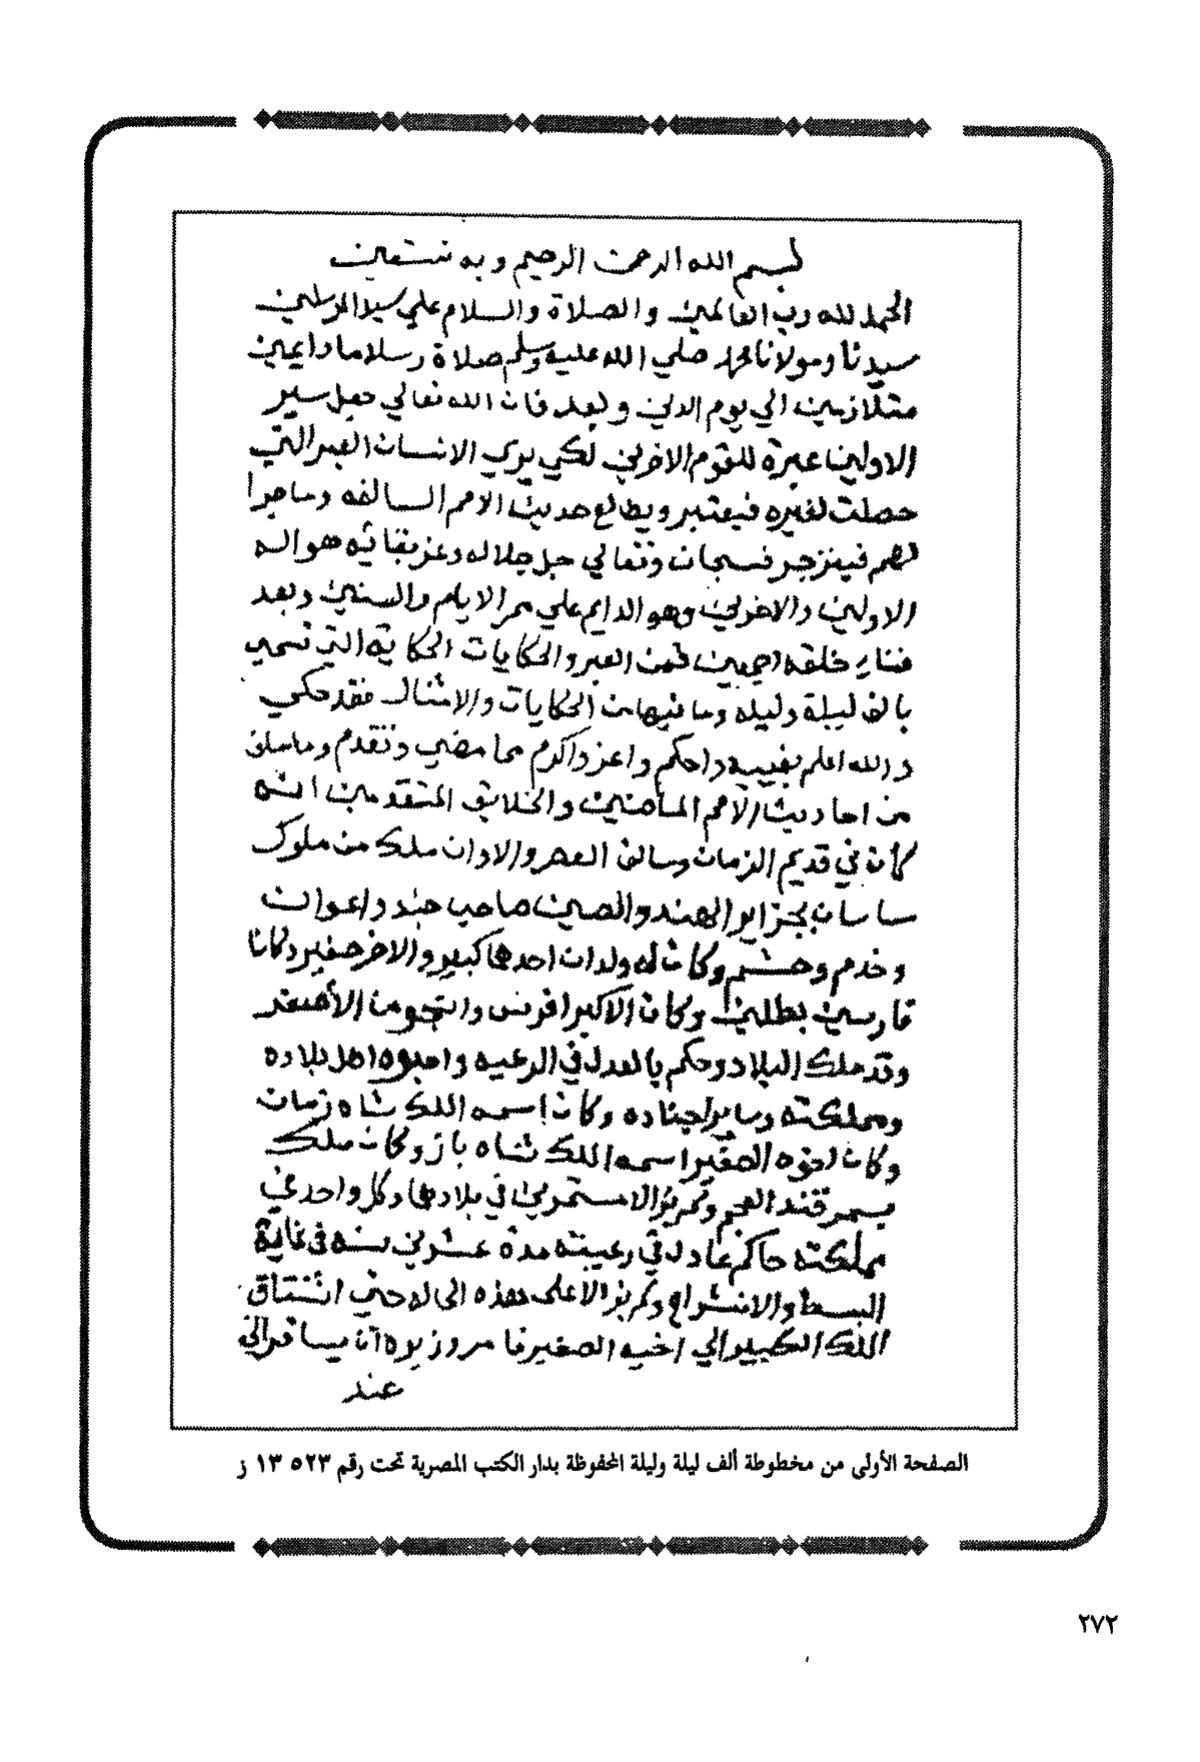 بسم الله الرحمن الرحيم وبه نستعين
الحمد لله رب العالمين والصلاة والسلام علي سيد المرسلين
سيدنا ومولانا محمد صلي الله عليه وسلم صلاة وسلاما دايمين
متلازمين الي يوم الدين وبعد فان الله تعالي جعل سير
الاولين عبرة للقوم الاخرين لكي يري الانسان العبر التي
حصلت لغيره فيعتبر ويطالع حديث الامم السالفه وما جرا
لهم فينزجر فسبحان وتعالي جل جلاله وعز بقائه هو اله
الاولين والاخرين وهو الدايم علي ممر الايام والسنين وبعد
فناء خلقه اجمعين فمن العبر والحكايات الحكاية التي تسمي
بالف ليلة وليله وما فيها من الحكايات والامثال فقد حكي
والله اعلم بغيبه واحكم واعز واكرم مما مضي وتقدم وما سلف
من احاديث الامم الماضين والخلايق المتقدمين انه
كان في قديم الزمان وسالف العصر والاوان ملك من ملوك
ساسان بجزاير الهند والصين صاحب جند واعوان
وخدم وحشم وكان له ولدان احدهما كبير والاخر صغير وكانا
فارسين بطلين وكان الاكبر افرس واشجع من الأصغر
وقد ملك البلاد وحكم بالعدل في الرعيه واحبوه اهل بلاده
ومملكته وساير اجناده وكان إسمه الملك شاه زمان
وكان اخوه الصغير اسمه الملك شاه باز وكان ملك
بسمرقند العجم ولم يزالا مستمرين في بلادهما وكل واحد في
مملكته حاكم عادل في رعيته مدة عشرين سنه في غاية
البسط والانشراح ولم يزالا علي هذه الحاله حتي اشتاق
الملك الكبير الي اخيه الصغير فامر وزيره ان يسافر الي
عند
الصفحة الأولى من مخطوطة ألف ليلة وليلة المحفوظة بدار الكتب المصرية تحت رقم ١٣٥٢٣ ز
٢٧٢